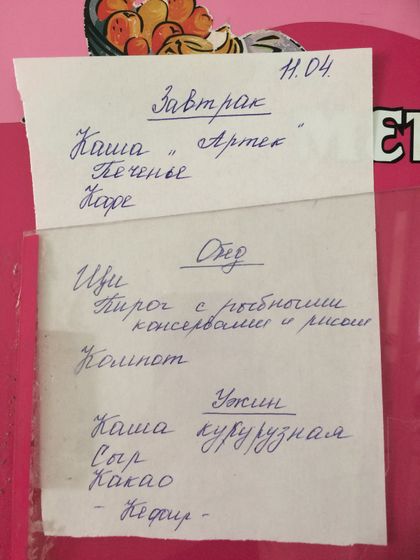 11.04.
Завтрак
Каша „Артек"
Печенье
Кофе
Обед
Щи
Пирог с рыбными
консервами и рисом
Компот
Ужин
Каша кукурузная
Сыр
Какао
- Кефир -